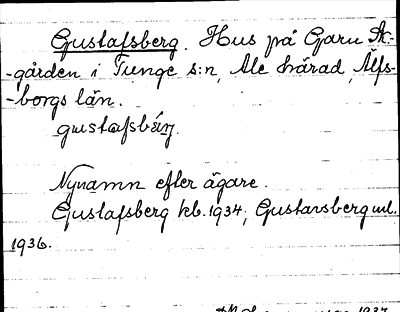 Gustafsberg. Hus på Garn Ås-
-gården i Tunge s:n, Ale härad, Älfs-
-borgs län.
gustafsbärj.
Nynamn efter ägare.
Gustafsberg kb. 1934; Gustavsberg ml.
1936.